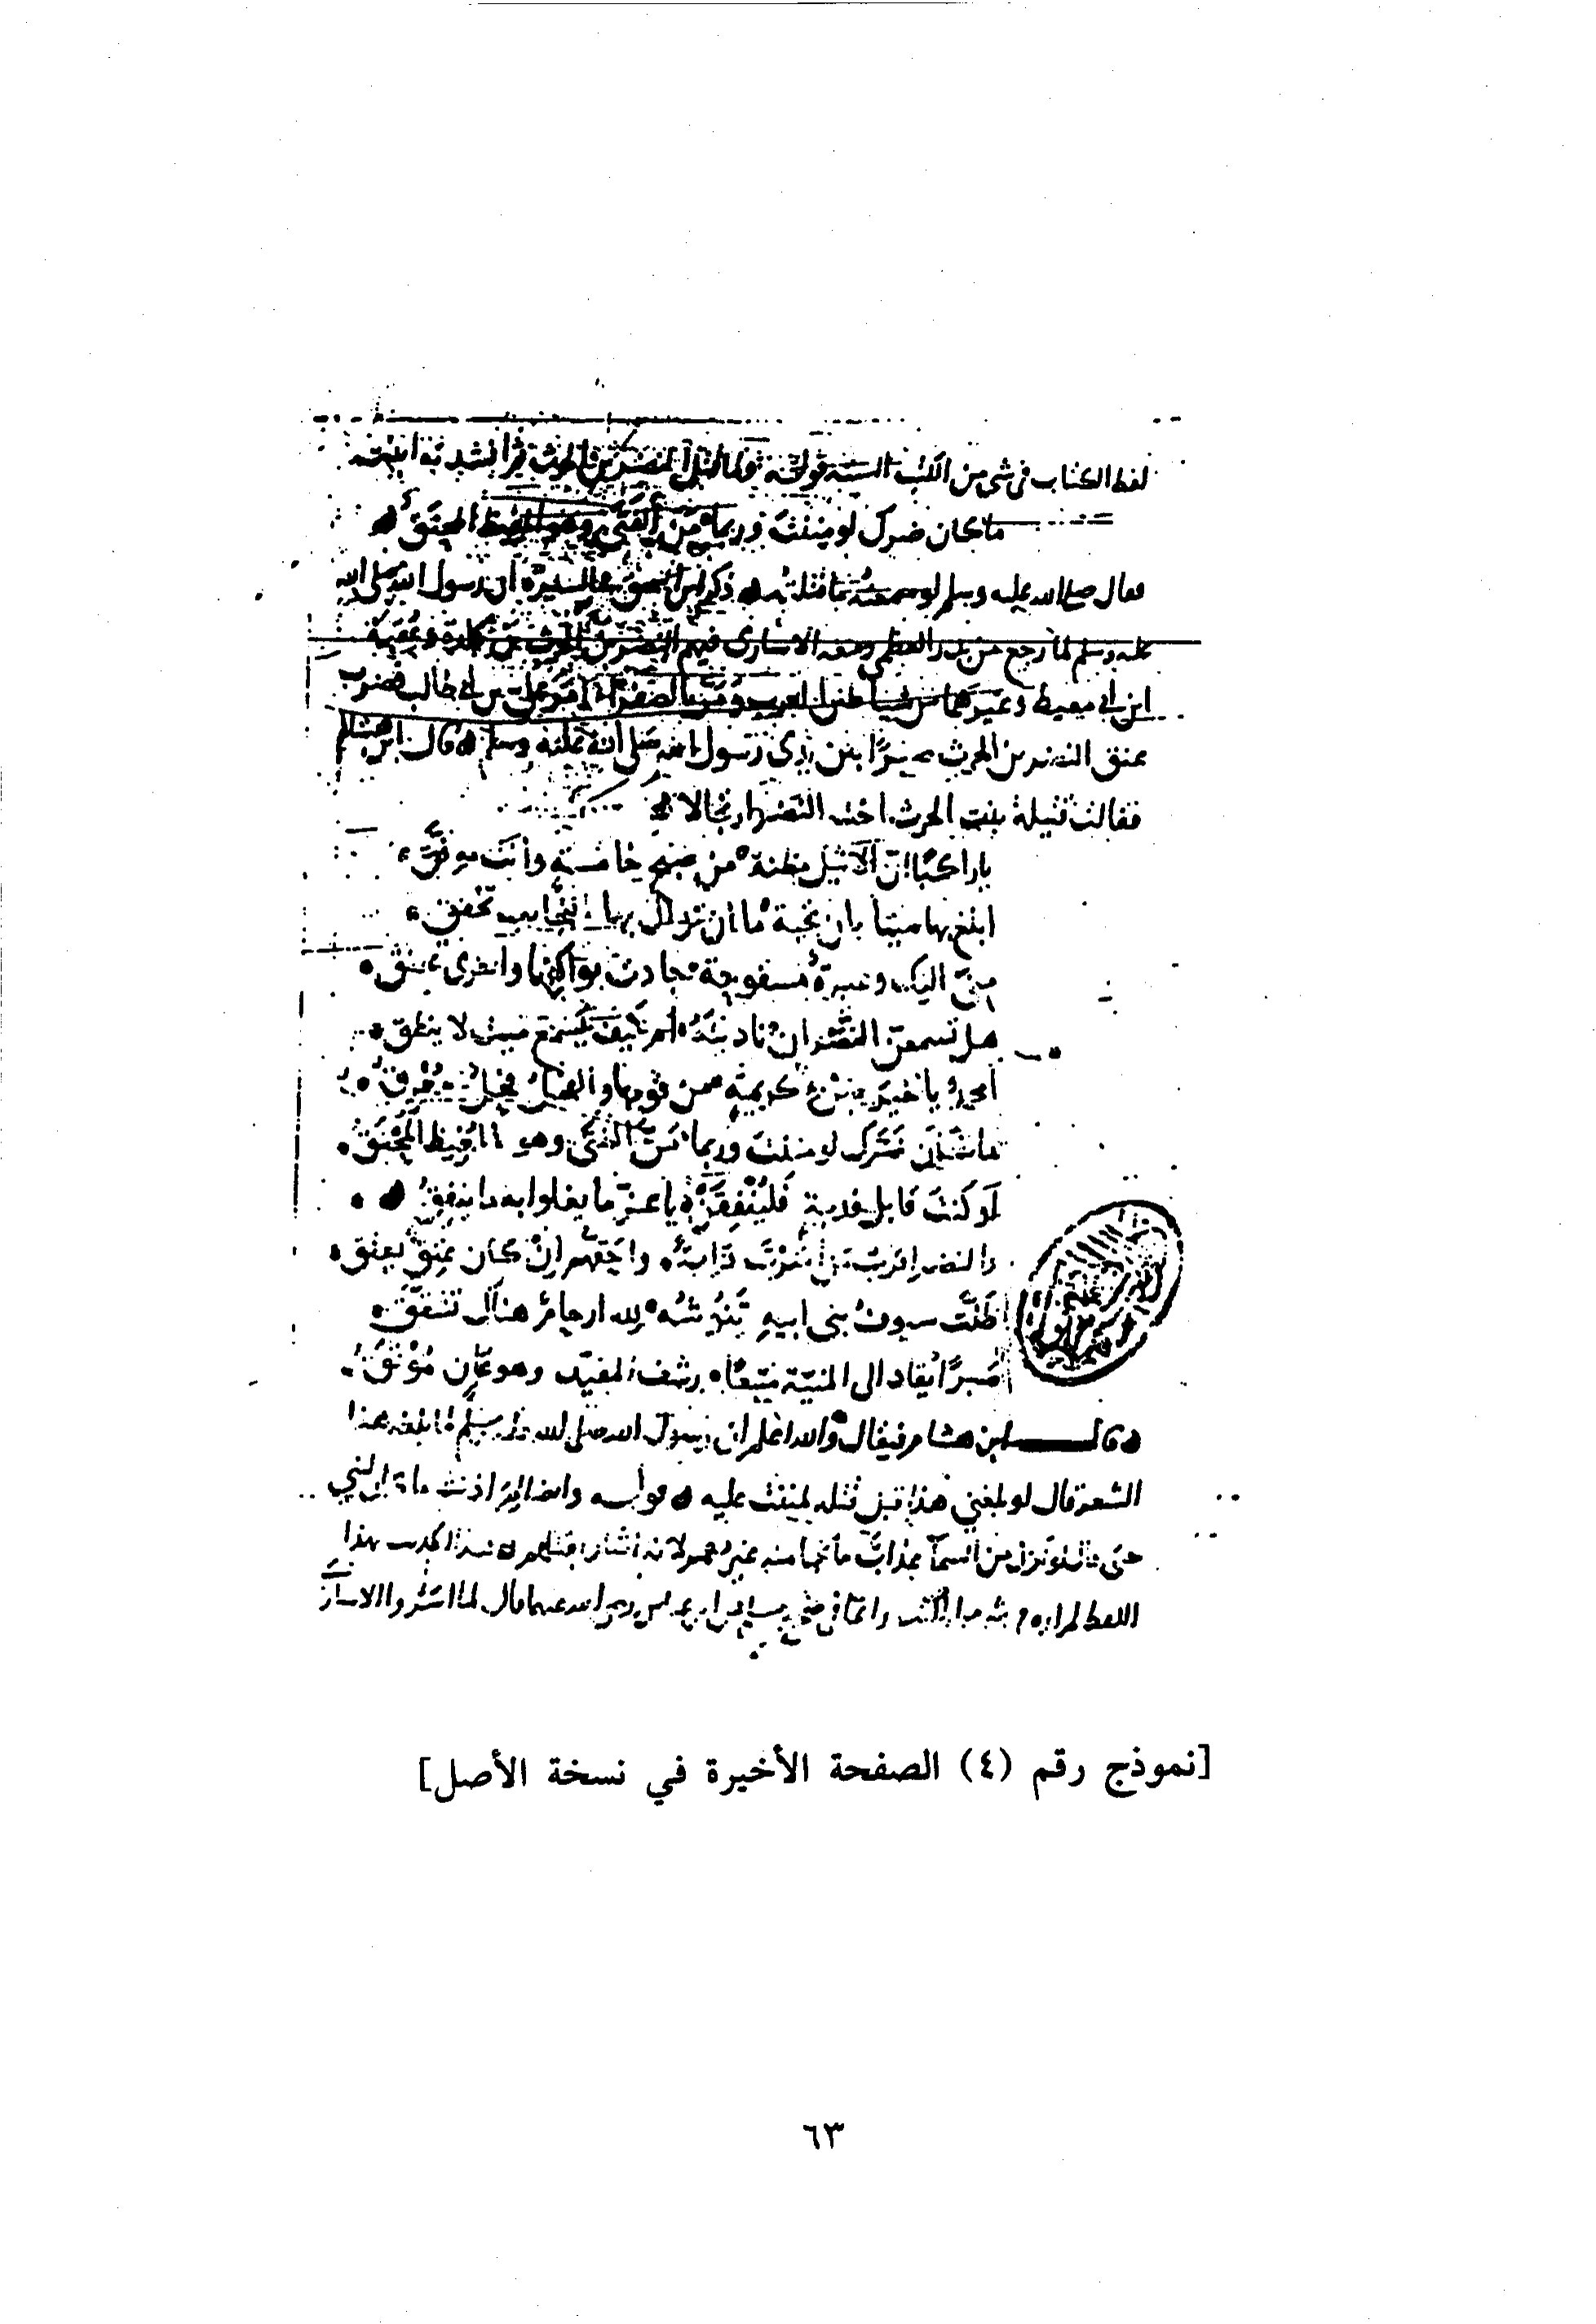 لفظ الكتاب في شي من الكتب الستة قوله ولما قتل النضر بن الحرث ثم انشدته ابنته
ما كان ضرك لو مننت وربما من الفتى وهو المغيظ المحنق
فقال صلى الله عليه وسلم لو سمعته ما قتلته ذكر ابن اسحق في السيرة أن رسول الله صلى الله
عليه وسلم لما رجع من بدر العظمى ومعه الاسارى فيهم النضر بن الحرث بن كلدة وعقبة
ابن ابي معيط وغيرهما من العرب بالصفراء أمر علي بن ابي طالب فضرب
عنق النضر بن الحرث صبرًا بين يدي رسول الله صلى الله عليه وسلم قال ابن هشام
فقالت قتيلة بنت الحرث اخت النضر
يا راكبًا ان الأثيل مظنة من صبح خامسة وأنت موفق
ابلغ بها ميتا بان تحية ما ان تزال بها النجايب تخفق
مني اليك وعبرة مسفوحة جادت بواكفها واخرى تخنق
هل تسمعن النضر ان ناديته ام كيف يسمع ميت لا ينطق
أمحمد يا خير ضنء كريمة من قومها والفحل فحل معرق
ما كان ضرك لو مننت وربما من الفتى وهو المغيظ المحنق
لو كنت قابل فدية فلينفقن يا عز ما يغلوا به ما ينفق
والنضر اقرب من قرابة واحقهم ان كان عتق يعتق
ظلت سيوف بني ابيه تنوشه لله ارحام هناك تشقق
صبرًا يقاد الى المنية متعبًا رسف المقيد وهو عان موثق
قال ابن هشام فيقال والله اعلم ان رسول الله صلى الله عليه وسلم لما بلغه هذا
الشعر قال لو بلغني هذا قبل قتله لمننت عليه قوله
حتى قال لو نزل من السماء عذاب ما نجا منه غير عمر لانه اشار بقتلهم هذا الحديث بهذا
اللفظ لم اره في الكتب وانما في عباس رضي الله عنهما قال لما اسروا الاسارى
[نموذج رقم (٤) الصفحة الأخيرة في نسخة الأصل]
٦٣